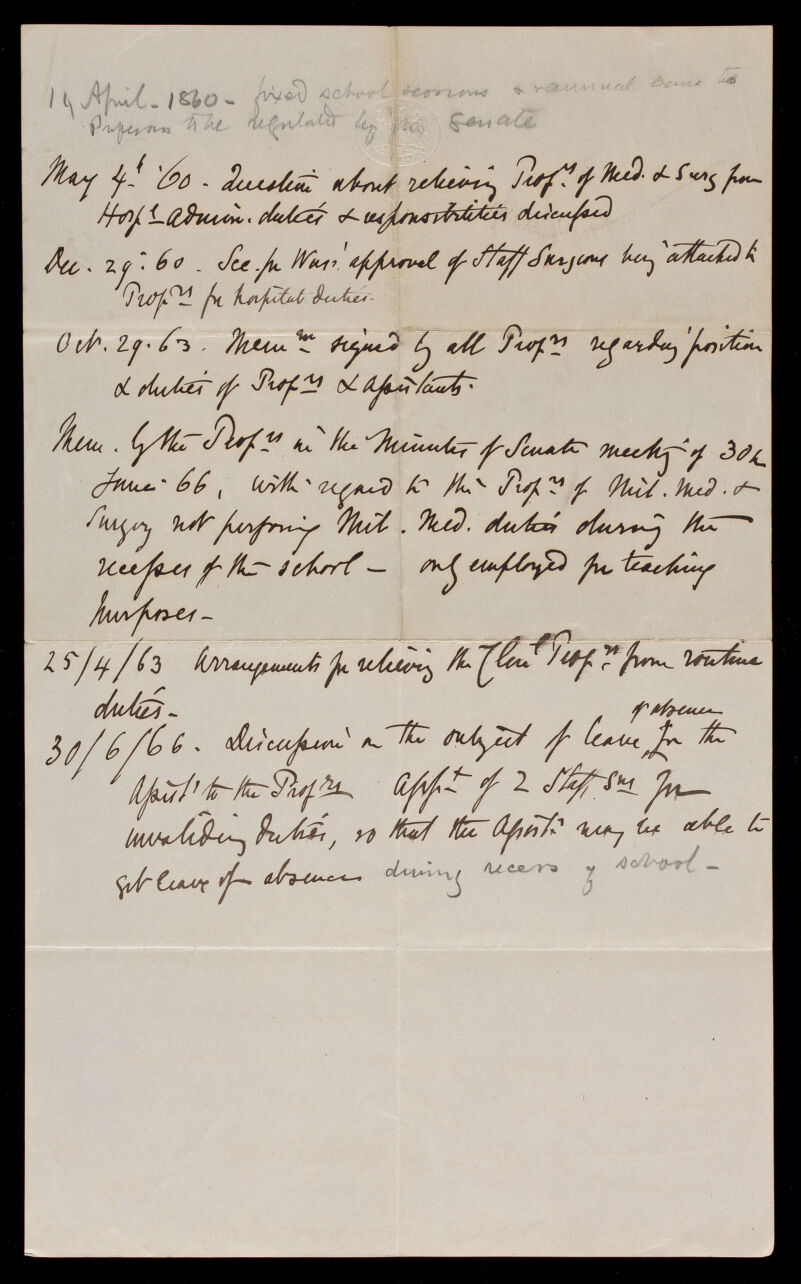 19 April - 1860 - fixed school sessions & annual leave to
Professors to be regulated by the Senate
May 4th '60 - Question about relieving Profrs of Med. & Surg from
Hospl admin. duties & responsibilities discussed
Dec. 29. 60. Sec. for War's approval of Staff Surgeons being attached to
Profrs for hospital duties.
Oct. 29. 63. Memm signed by all Profrs regarding position
& duties of Profrs & Assistants.
Mem. by the Profrs in the Minutes of Senate meeting of 30th
June 66, with regard to the Profrs of Mil. Med. &
Surgery not performing Mil. Med. duties during the
recesses of the school - only employed for teaching
purposes -
25/4/63 Arrangements for relieving the Clinl Profrs from routine
duties -
30/6/66. Discussion on the subject of leave of absence for the
Assists to the Profrs Appt of 2 Staff Sns for
invaliding duties, so that the Assists may be able to
get leave of absence during recess of school -